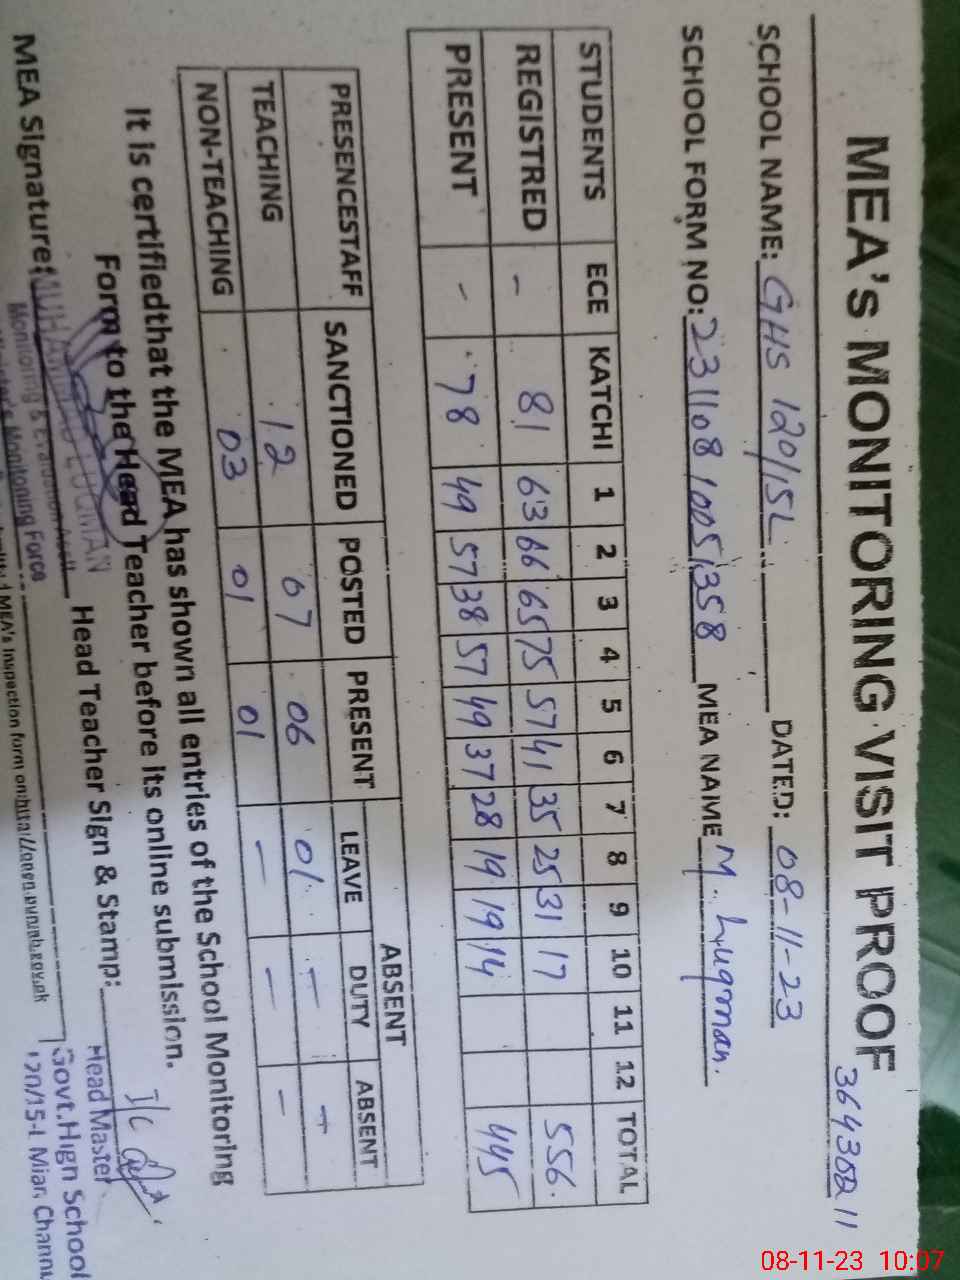 MEA's MONITORING VISIT PROOF
SCHOOL NAME: GHS 120/15L DATED: 08-11-23
SCHOOL FORM NO: 23110810051358 MEA NAME M. Luqman.
STUDENTS ECE KATCHI 1 2 3 4 5 6 7 8 9 10 11 12 TOTAL
REGISTRED - 81 63 66 65 75 57 41 35 25 31 17 556.
PRESENT - 78 49 57 38 57 49 37 28 19 19 14 445
PRESENCESTAFF SANCTIONED POSTED PRESENT ABSENT
LEAVE DUTY ABSENT
TEACHING 12 07 06 01 - -
NON-TEACHING 03 01 01 - - -
It is certifiedthat the MEA has shown all entries of the School Monitoring
Form to the Head Teacher before its online submission.
MEA Signature: Head Teacher Sign & Stamp: I/C
MUHAMMAD LUQMAN
Monitoring & Evaluation
Monitoring Force
Head Master
Govt.High School
120/15-L Mian Channu
MEA's Inspection form on
08-11-23 10:07